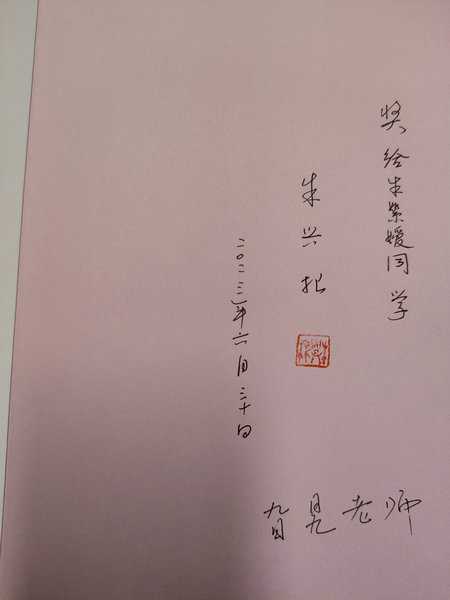 奖给朱紫媛同学
朱兴
二〇二三年六月三十日
旮旯老师